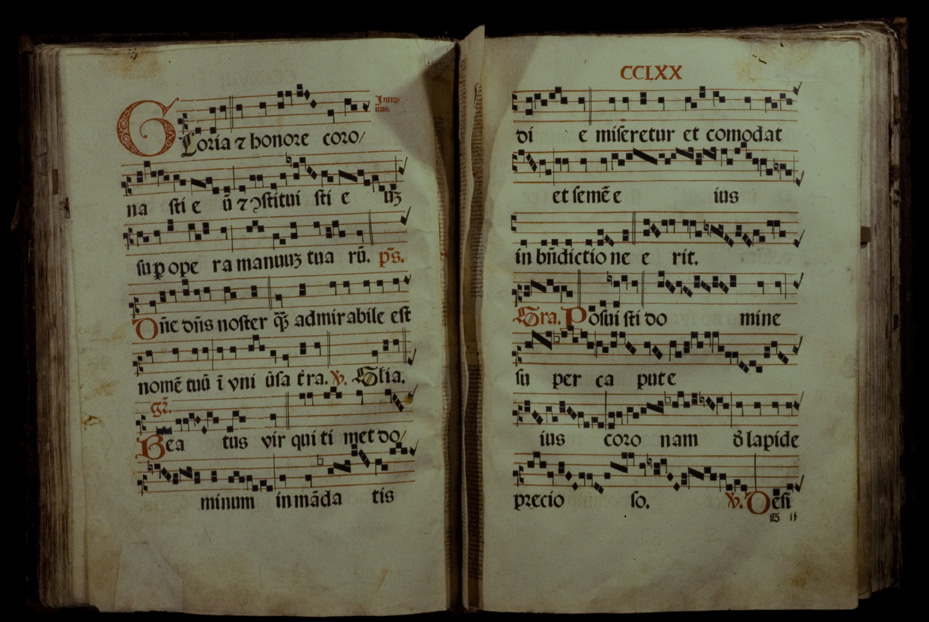 Intro
itus.
Gloria ⁊ honore coro/
na sti e ū ⁊ ꝯstitui sti e uꝫ
suꝑ ope ra manuuꝫ tua rū. p̄s.
One dn̄s noster q̄ꝫ admirabile est
nomē tuū ī vni ūsa t̄ra. ℣. Glīa.
gr̄.
Bea tus vir qui ti met do/
minum in māda tis
CCLXX
di e miseretur et comodat
et semē e ius
in bn̄dictio ne e rit.
Gra. Posui sti do mine
su per ca pute
ius coro nam d̄ lapide
precio so. ℣. Desi